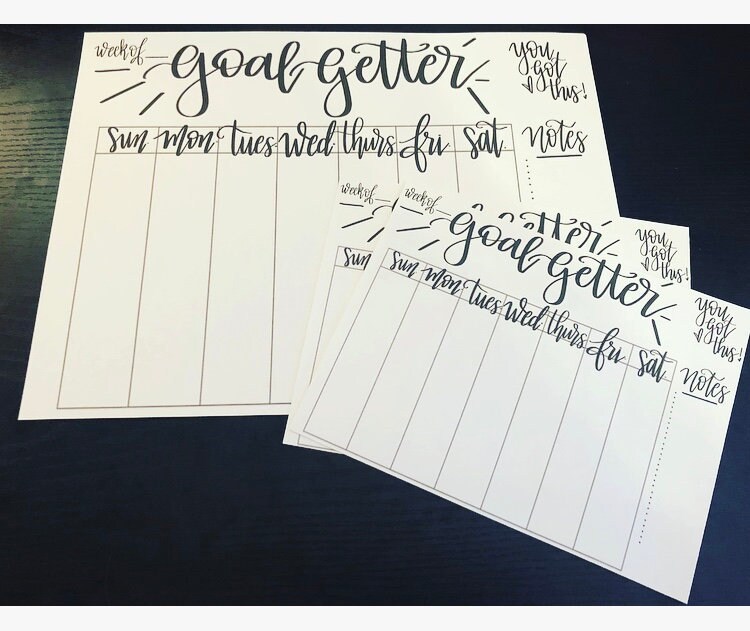 week of
Goal Getter
you
got
this!
sun mon tues wed thurs fri sat
notes
week of
etter
you
got
this!
sun
week of
Goal Getter
you
got
this!
sun mon tues wed thurs fri sat
notes